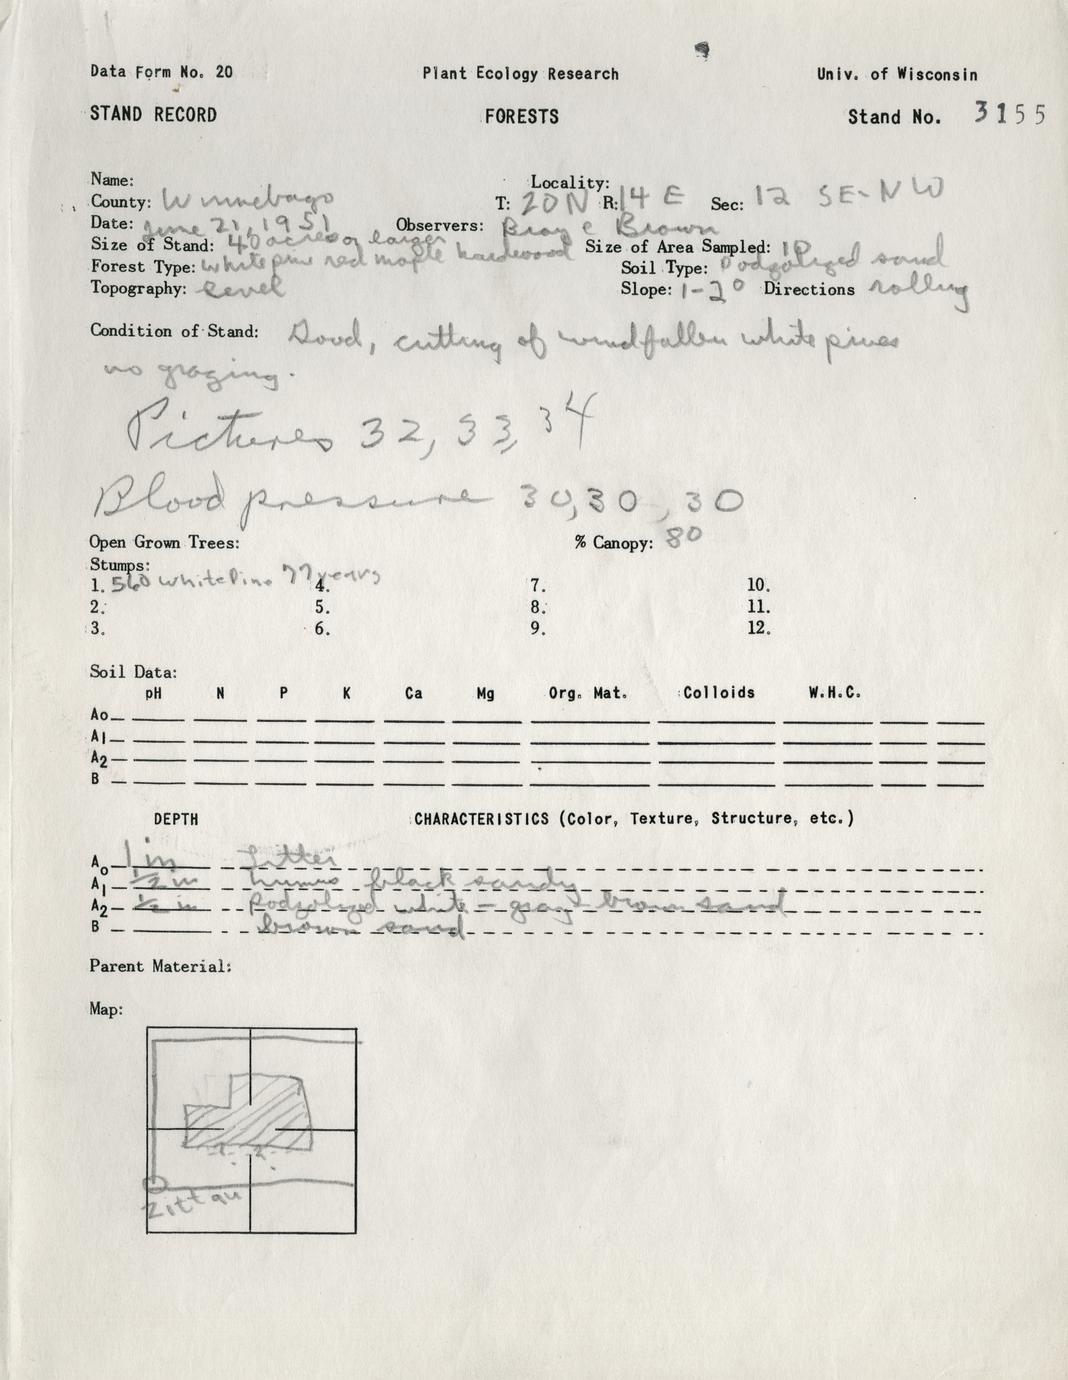 Data Form No. 20 Plant Ecology Research Univ. of Wisconsin
STAND RECORD FORESTS Stand No. 3155
Name: Locality:
County: Winnebago T: 20N R: 14 E Sec: 12 SE-NW
Date: June 21, 1951 Observers: Bray & Brown
Size of Stand: 40 acres or larger Size of Area Sampled: 1P
Forest Type: white pine red maple hardwood Soil Type: Podzolized sand
Topography: level Slope: 1-2° Directions rolling
Condition of Stand: Good, cutting of windfallen white pines
no grazing.
Pictures 32, 33, 34
Blood pressure 30, 30, 30
Open Grown Trees: % Canopy: 80
Stumps:
1. 560 White Pine 77 years 4. 7. 10.
2. 5. 8. 11.
3. 6. 9. 12.
Soil Data:
pH N P K Ca Mg Org. Mat. Colloids W.H.C.
Ao
A1
A2
B
DEPTH CHARACTERISTICS (Color, Texture, Structure, etc.)
Ao 1 in litter
A1 1/2 in humus black sandy
A2 1/2 in Podzolized white - gray - brown sand
B brown sand
Parent Material:
Map:
Zittau